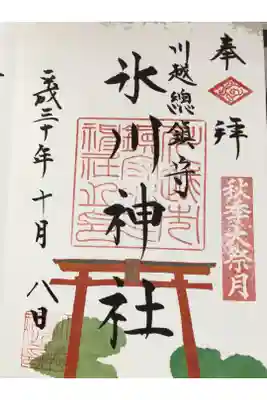 奉拝
秋季大祭月
川越總鎮守
氷川神社
平成三十年十月八日